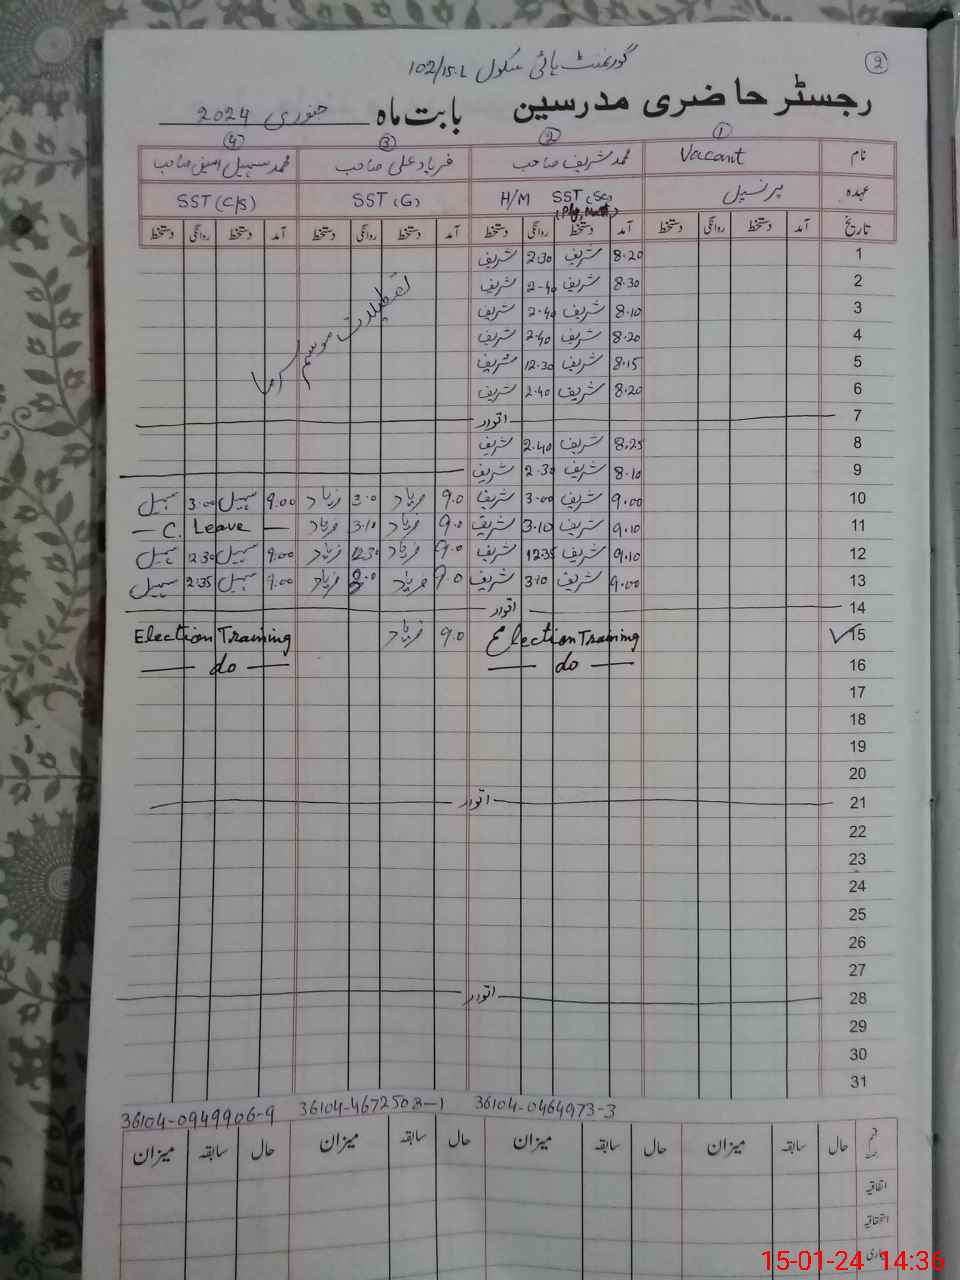 2
گورنمنٹ ہائی سکول 102/15.L
رجسٹر حاضری مدرسین بابت ماہ جنوری 2024
1 2 3 4
نام Vacant محمد شریف صاحب فریاد علی صاحب محمد سہیل امین صاحب
عہدہ پرنسپل SST (Sc) H/M SST (G) SST (C/S)
تاریخ آمد دستخط روانگی دستخط آمد دستخط روانگی دستخط آمد دستخط روانگی دستخط آمد دستخط روانگی دستخط
1 8.20 شریف 2.30 شریف
2 8.30 شریف 2-40 شریف
3 8.10 شریف 2.40 شریف
4 8.20 شریف 2.40 شریف
5 8.15 شریف 12.30 شریف
6 8.20 شریف 2.40 شریف
تعطیلات موسم سرما
7 اتوار
8 8.25 شریف 2.40 شریف
9 8.10 شریف 2.30 شریف
10 9.00 شریف 3.00 شریف 9.0 فریاد 3.0 فریاد 9.00 سہیل 3.00 سہیل
11 9.10 شریف 3.10 شریف 9.0 فریاد 3.10 فریاد — C. Leave —
12 9.10 شریف 1235 شریف 9.0 فریاد 12.30 فریاد 9.00 سہیل 12.30 سہیل
13 9.00 شریف 3.10 شریف 9.0 فریاد 3.0 فریاد 9.00 سہیل 2.35 سہیل
14 اتوار
15 Election Training 9.0 فریاد Election Training
16 — do — — do —
17
18
19
20
21 اتوار
22
23
24
25
26
27
28 اتوار
29
30
31
36104-0464973-3 36104-4672508-1 36104-0949906-9
حال سابقہ میزان حال سابقہ میزان حال سابقہ میزان حال سابقہ میزان
اتفاقیہ
15-01-24 14:36